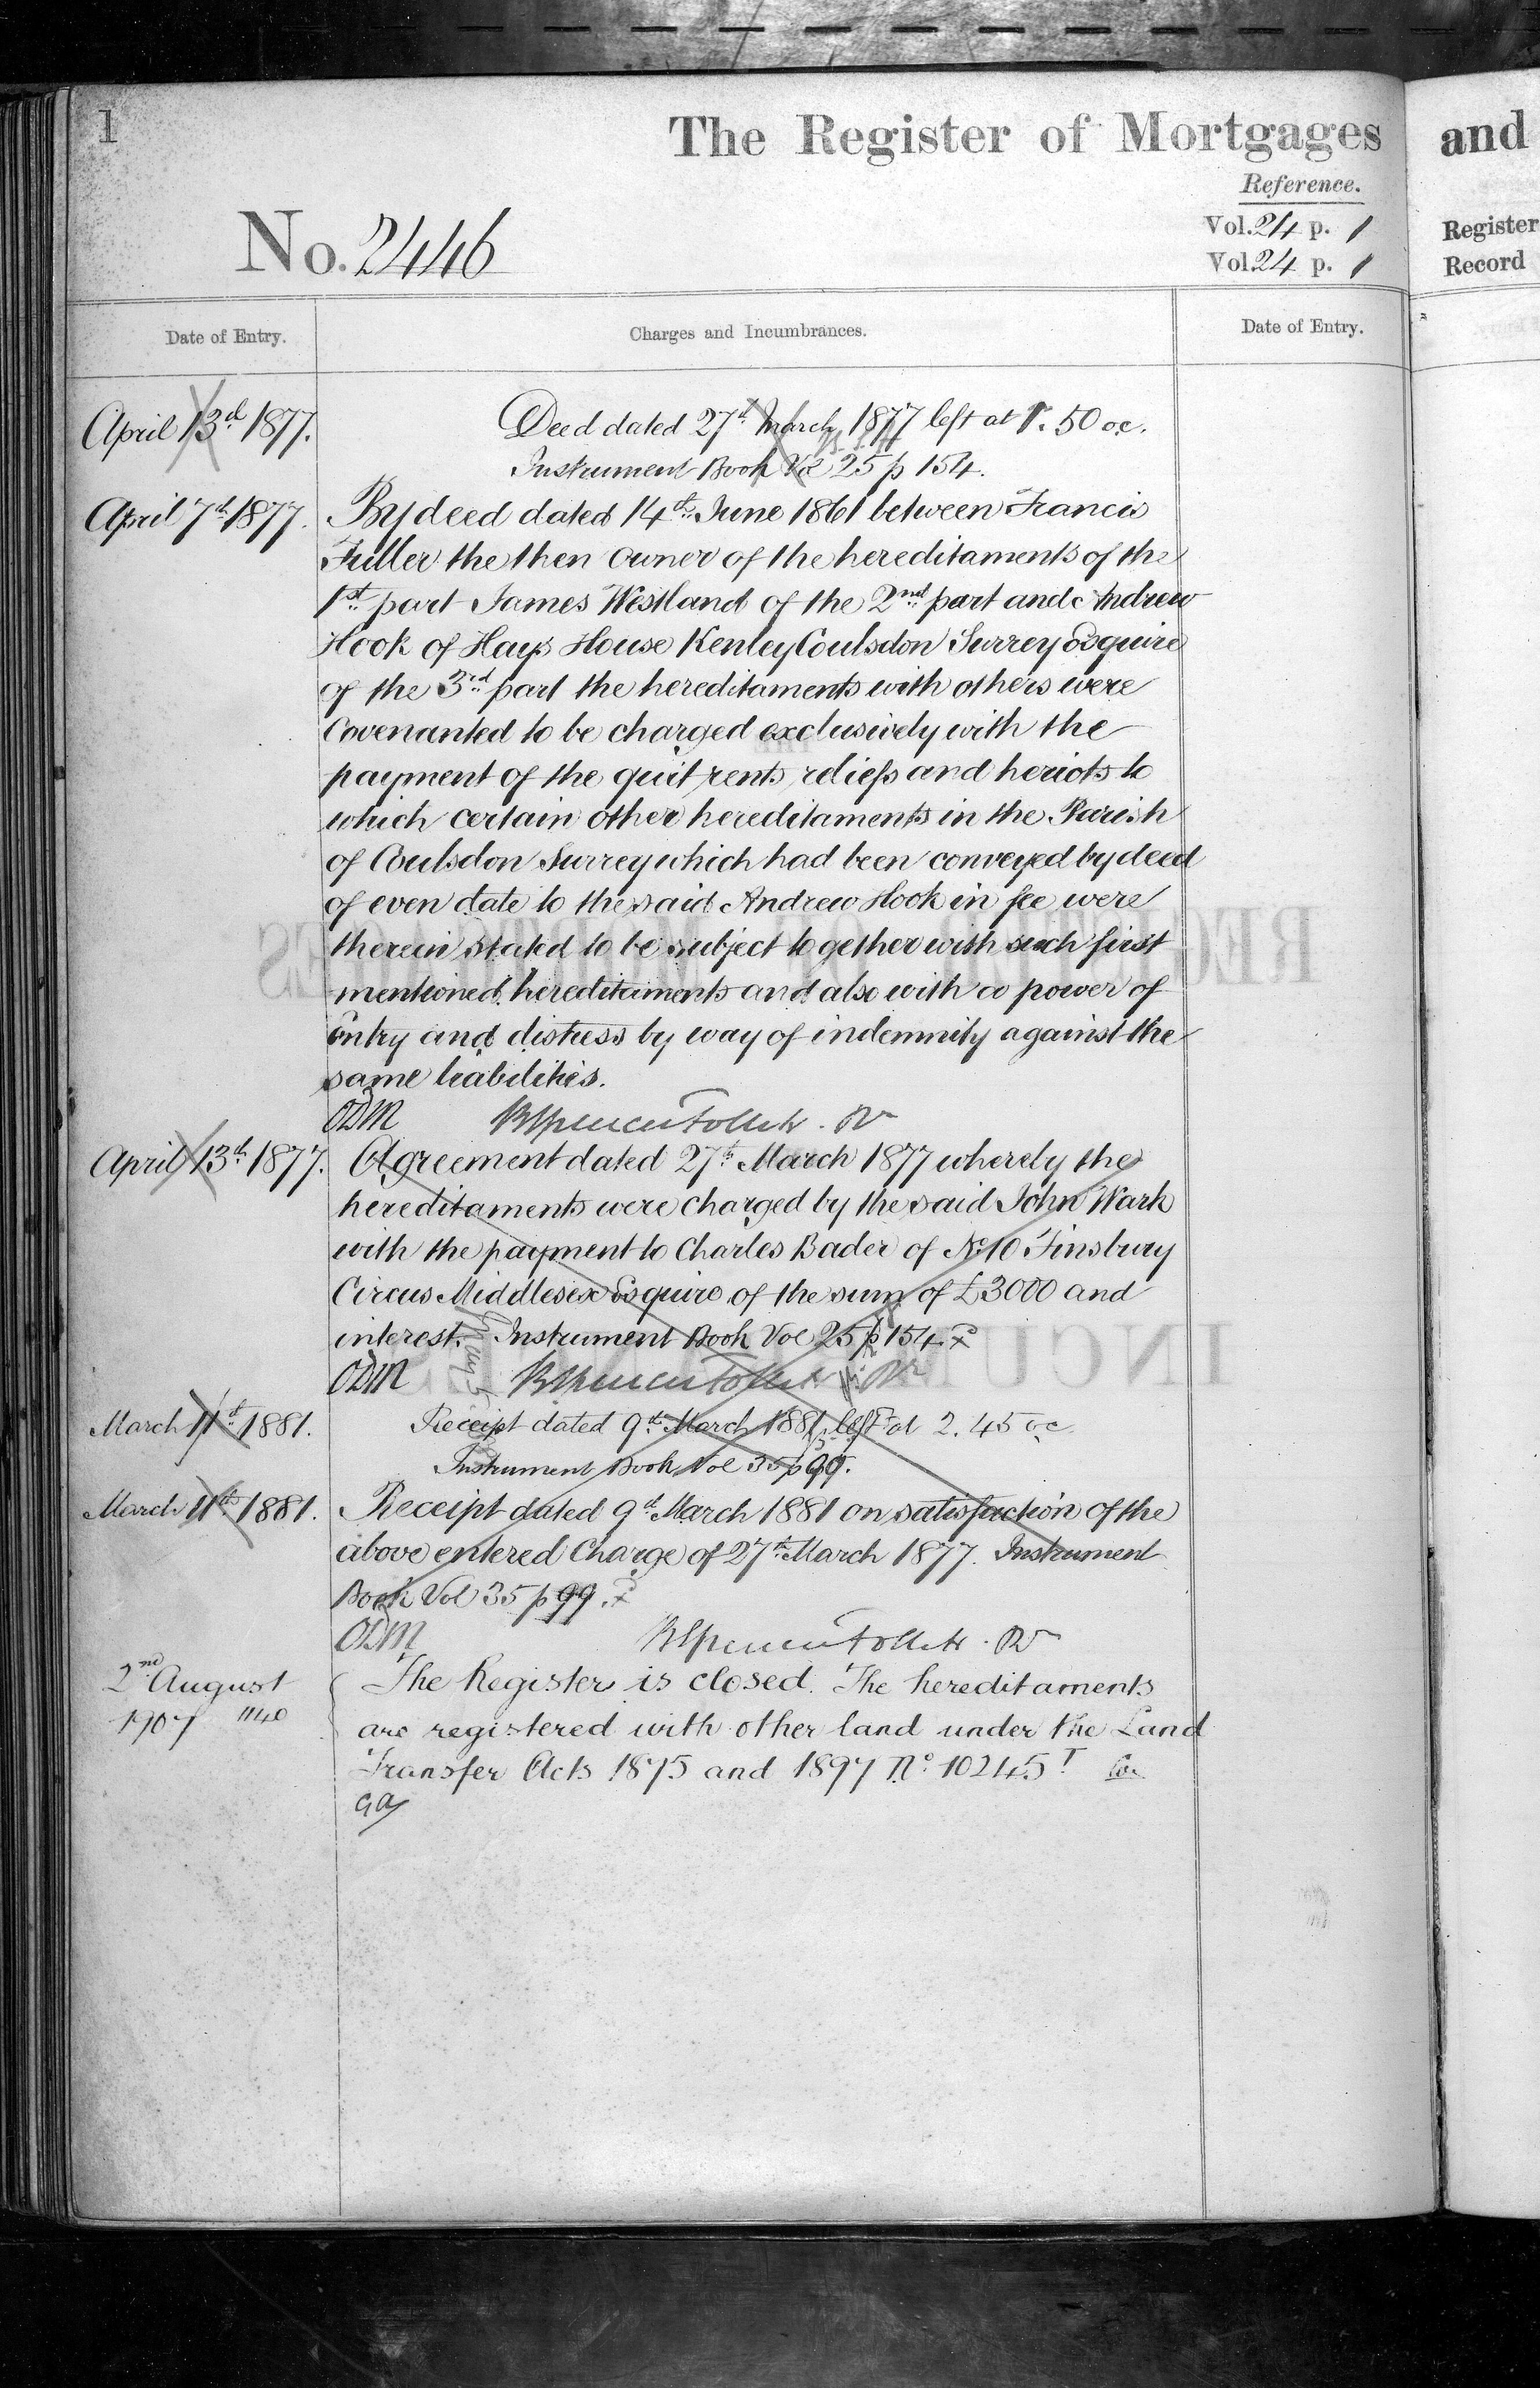 1
The Register of Mortgages
and
Reference.
No. 2446
Vol. 24 p. 1
Vol. 24 p. 1
Register
Record
Date of Entry.
Charges and Incumbrances.
Date of Entry.
April 13th 1877.
Deed dated 27th March 1877 left at 1.50 oc.
Instrument Book Vol 25 p 154.
April 7th 1877.
By deed dated 14th June 1861 between Francis
Fuller the then owner of the hereditaments of the
1st part James Westland of the 2nd part and Andrew
Hook of Hays House Kenley Coulsdon Surrey Esquire
of the 3rd part the hereditaments with others were
Covenanted to be charged exclusively with the
payment of the quit rents reliefs and heriots to
which certain other hereditaments in the Parish
of Coulsdon Surrey which had been conveyed by deed
of even date to the said Andrew Hook in fee were
therein stated to be subject together with such first
mentioned hereditaments and also with a power of
entry and distress by way of indemnity against the
same liabilities.
ODM
April 13th 1877.
Agreement dated 27th March 1877 whereby the
hereditaments were charged by the said John Wark
with the payment to Charles Bader of No 10 Finsbury
Circus Middlesex Esquire of the sum of £3000 and
interest. Instrument Book Vol 25 p 154.
ODM
March 11th 1881.
Receipt dated 9th March 1881 left at 2.45 oc
Instrument Book Vol 35 p 99.
March 11th 1881.
Receipt dated 9th March 1881 on satisfaction of the
above entered Charge of 27th March 1877. Instrument
Book Vol 35 p 99.
ODM
2nd August
1907 1140
The Register is closed. The hereditaments
are registered with other land under the Land
Transfer Acts 1875 and 1897 No 10245